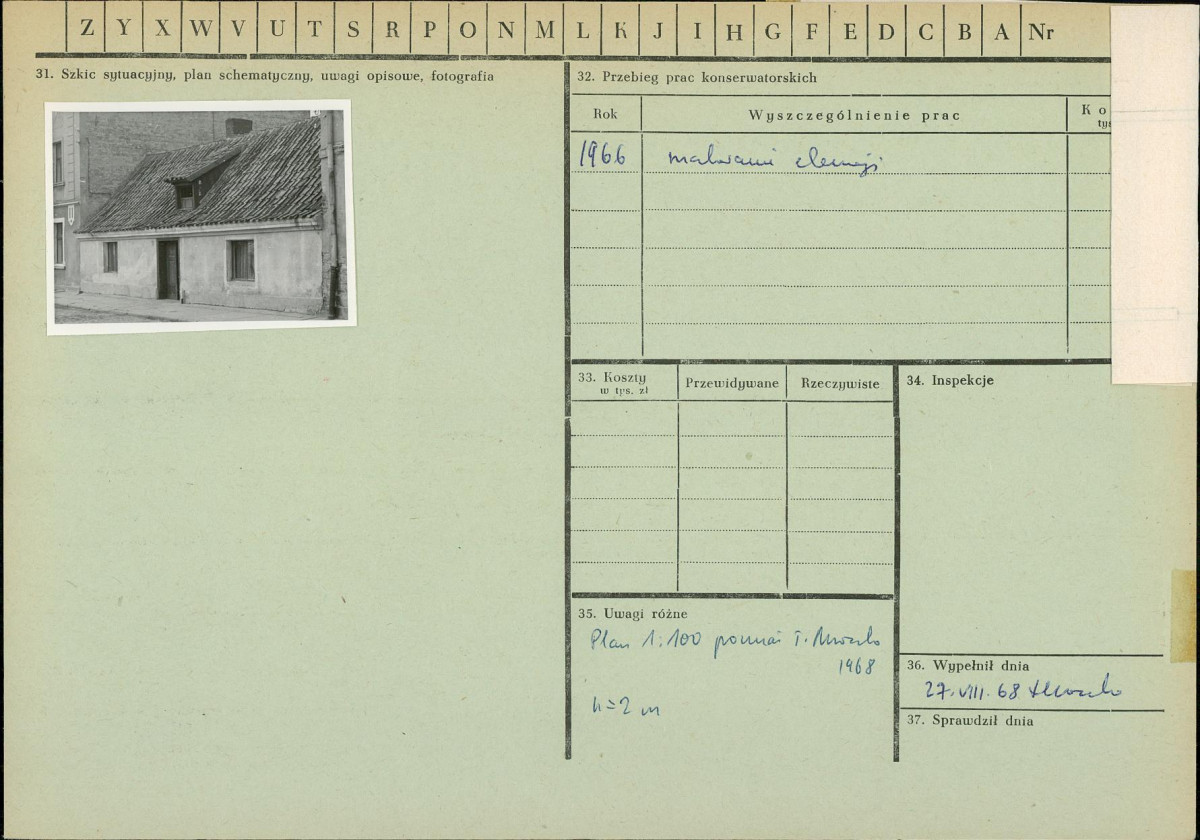 Z Y X W V U T S R P O N M L K J I H G F E D C B A Nr
31. Szkic sytuacyjny, plan schematyczny, uwagi opisowe, fotografia
32. Przebieg prac konserwatorskich
Rok
Wyszczególnienie prac
K o
tys
1966
33. Koszty
w tys. zł
Przewidywane
Rzeczywiste
34. Inspekcje
35. Uwagi różne
Plan 1:100 T.
1968
h=2 m
36. Wypełnił dnia
27.VIII.68
37. Sprawdził dnia